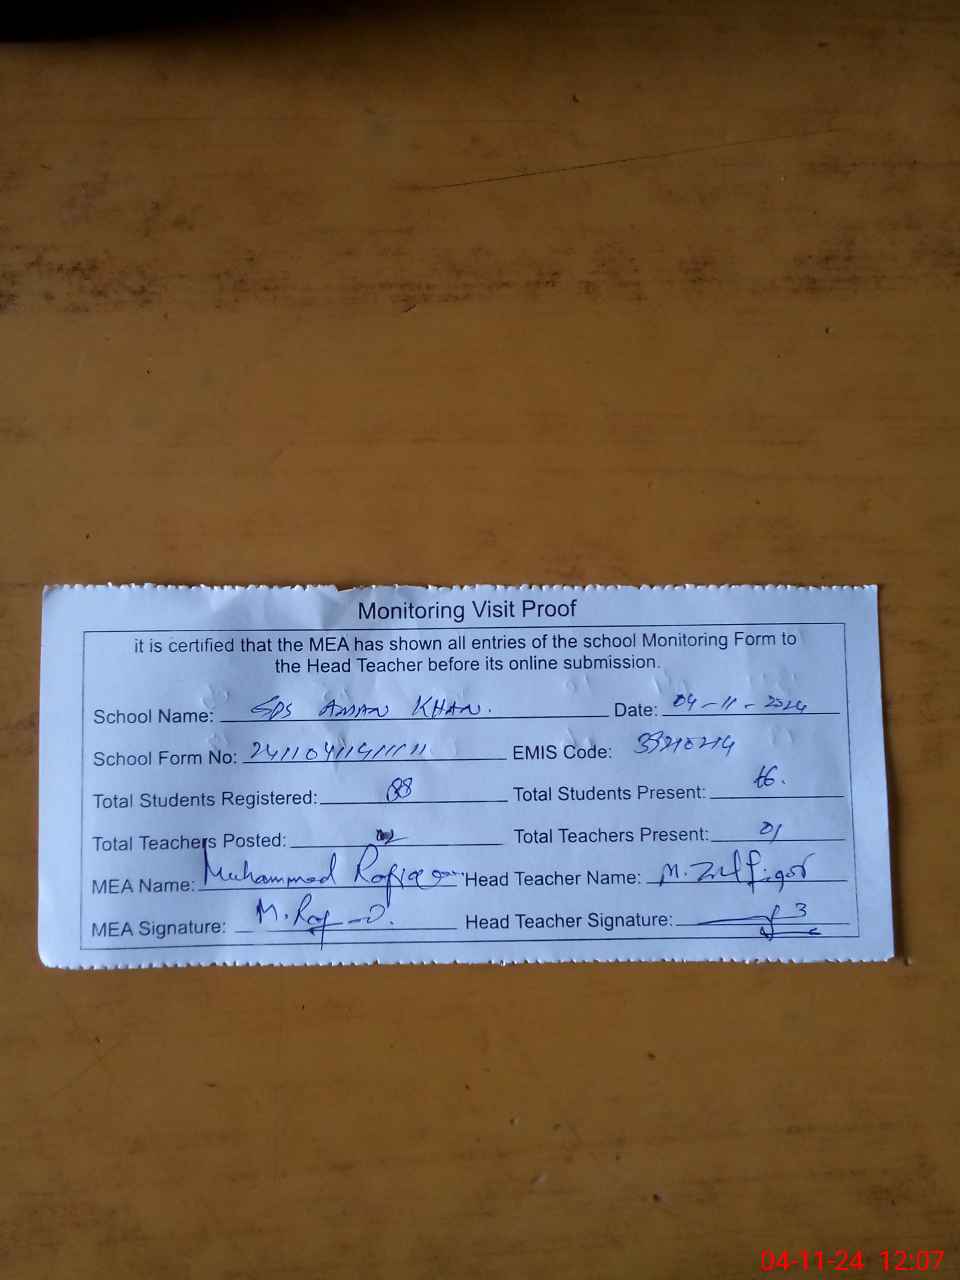 Monitoring Visit Proof
it is certified that the MEA has shown all entries of the school Monitoring Form to
the Head Teacher before its online submission.
School Name: GPS AMAN KHAN. Date: 04-11-2024
School Form No: EMIS Code:
Total Students Registered: 88 Total Students Present:
Total Teachers Posted: Total Teachers Present: 01
MEA Name: Muhammad Head Teacher Name: M. Zulfiqar
MEA Signature: Head Teacher Signature:
04-11-24 12:07